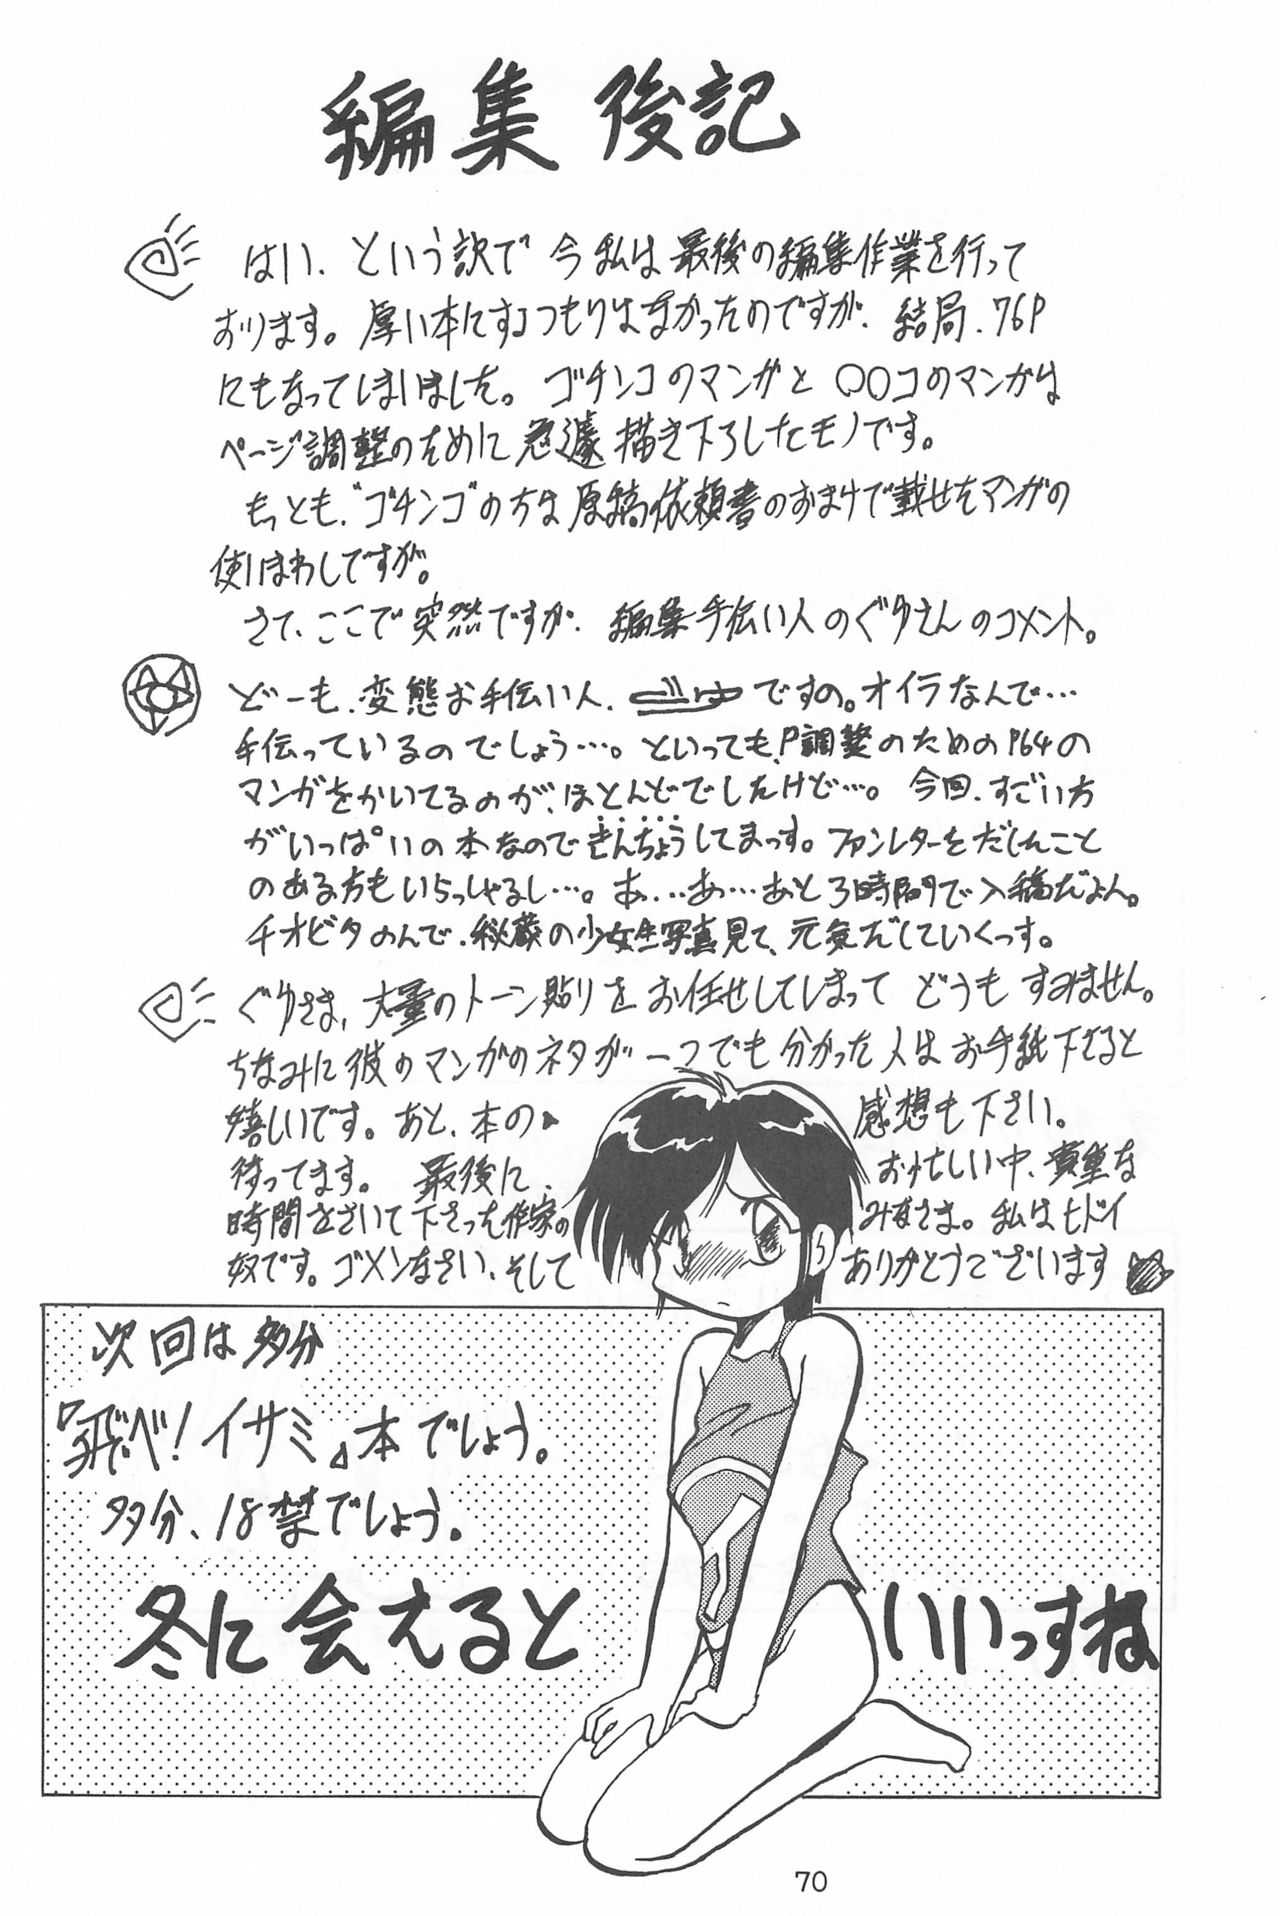 編集後記
はい、という訳で今私は最後の編集作業を行って
おります。厚い本にするつもりはなかったのですが、結局、76P
にもなってしまいました。ゴチンコのマンガと〇〇コのマンガは
ページ調整のために急遽描き下ろしたモノです。
もっとも、"ゴチンコ"の方は原稿依頼書のおまけで載せたマンガの
使いまわしですが。
さて、ここで突然ですが、編集手伝い人のぐゆさんのコメント。
どーも、変態お手伝い人、ですの。オイラなんで…
手伝っているのでしょう…。といっても、P調整のためのP64の
マンガをかいてるのが、ほとんどでしたけど…。今回、すごい方
がいっぱいの本なのできんちょうしてまっす。ファンレターをだしたこと
のある方もいらっしゃるし…。あ…あ…あと3時間で入稿だよん。
チオビタのんで、秘蔵の少女生写真見て、元気だしていくっす。
ぐゆさま、大量のトーン貼りをお任せしてしまってどうもすみません。
ちなみに彼のマンガのネタが一つでも分かった人はお手紙下さると
嬉しいです。あと、本の感想も下さい。
待ってます。最後に、お忙しい中、貴重な
時間をさいて下さった作家のみなさま。私はヒドイ
奴です。ゴメンなさい、そしてありがとうございます
次回は多分
『飛べ!イサミ』本でしょう。
多分、18禁でしょう。
冬に会えるといいっすね
70